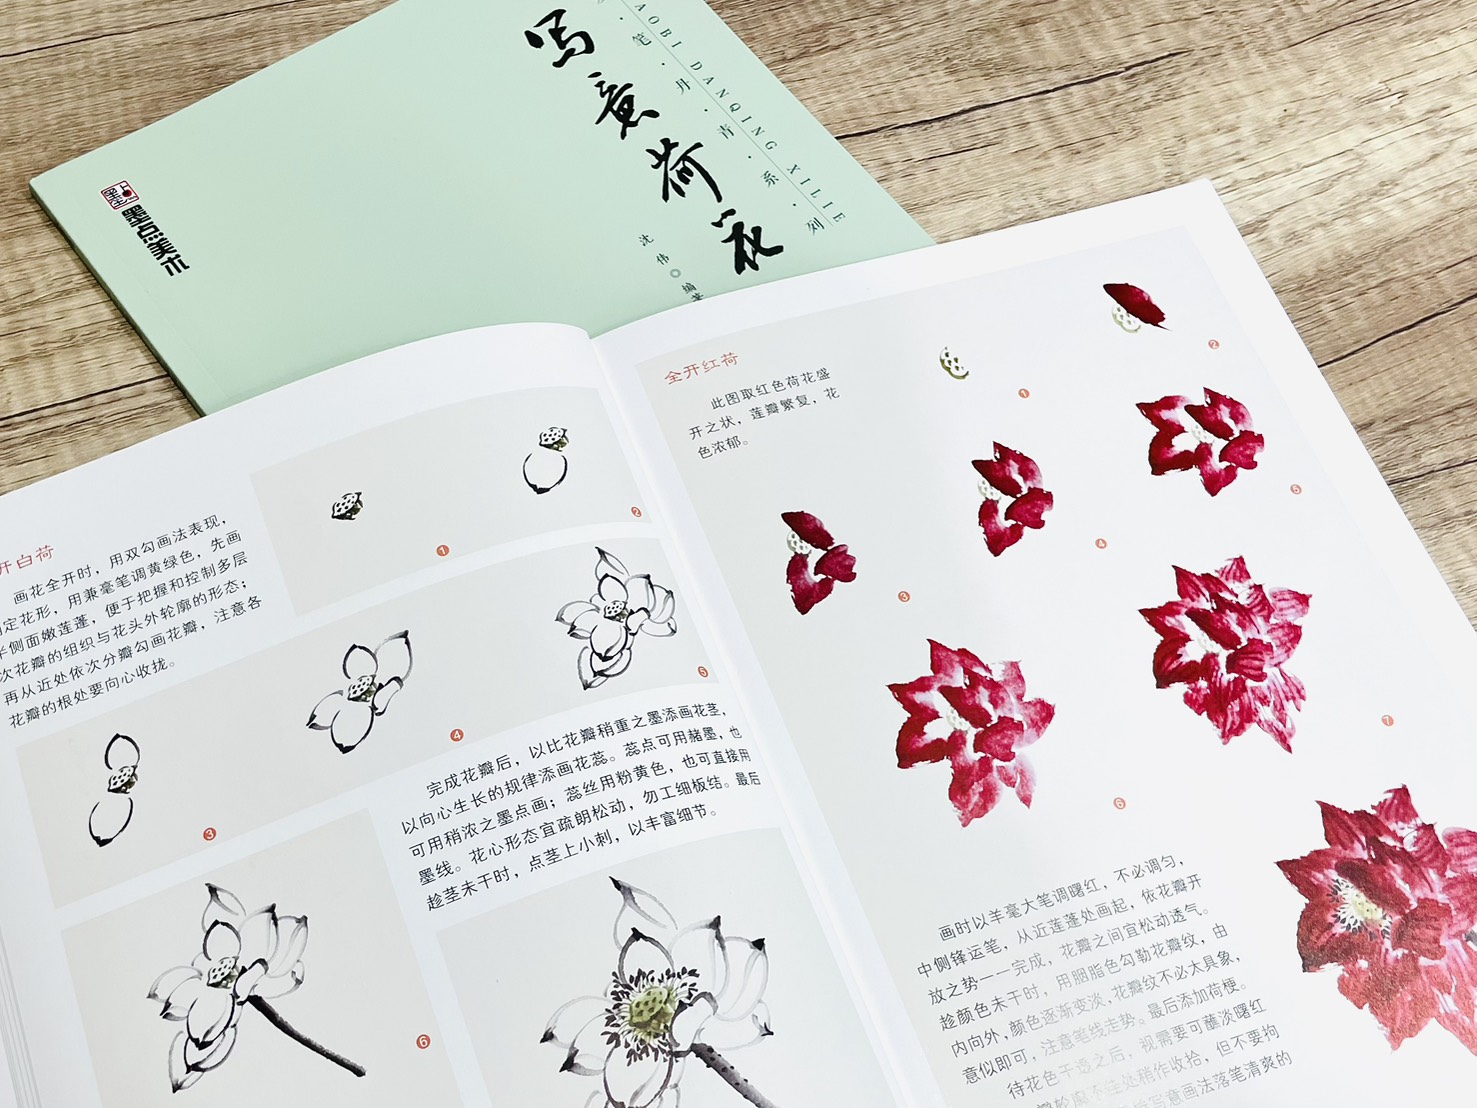 写意荷花
AOBI DANQING XILIE
笔·丹·青·系·列
沈伟◎编著
墨点美术
开白荷
画花全开时，用双勾画法表现，
定花形，用兼毫笔调黄绿色，先画
半侧面嫩莲蓬，便于把握和控制多层
次花瓣的组织与花头外轮廓的形态；
再从近处依次分瓣勾画花瓣，注意各
花瓣的根处要向心收拢。
1
2
3
4
5
完成花瓣后，以比花瓣稍重之墨添画花茎，
以向心生长的规律添画花蕊。蕊点可用赭墨，也
可用稍浓之墨点画；蕊丝用粉黄色，也可直接用
墨线。花心形态宜疏朗松动，勿工细板结。最后
趁茎未干时，点茎上小刺，以丰富细节。
6
全开红荷
此图取红色荷花盛
开之状，莲瓣繁复，花
色浓郁。
1
2
3
4
5
6
7
画时以羊毫大笔调曙红，不必调匀，
中侧锋运笔，从近莲蓬处画起，依花瓣开
放之势一一完成，花瓣之间宜松动透气。
趁颜色未干时，用胭脂色勾勒花瓣纹，由
内向外，颜色逐渐变淡，花瓣纹不必太具象，
意似即可，注意笔线走势。最后添加荷梗。
待花色干透之后，视需要可蘸淡曙红
处稍作收拾，但不要拘
写意画法落笔清爽的